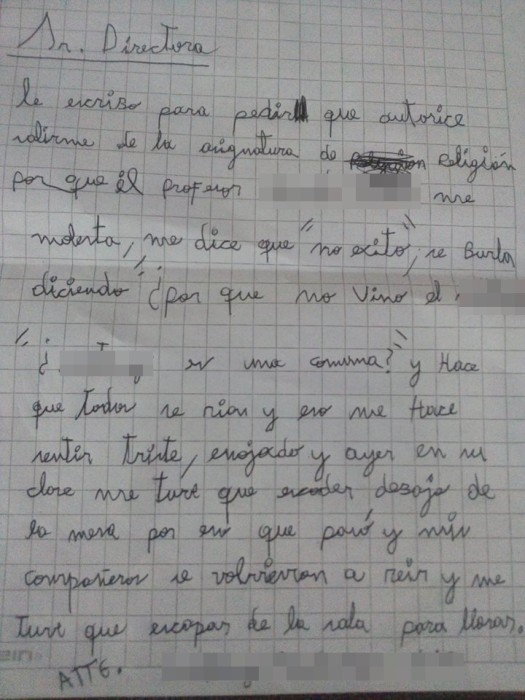 Sr. Directora
le escribo para pedir que autorice
salirme de la asignatura de religión
por que él profesor me
molesta, me dice que "no exito", se Burla
diciendo "¿por que no Vino el
"¿ es una comuna?" y Hace
que todos se rian y eso me Hace
sentir triste, enojado y ayer en su
clase me tuve que escoder desajo de
la mesa por en que pasó y mis
compañeros se volvieron a reir y me
tuve que escapar de la sala para llorar.
ATTE.